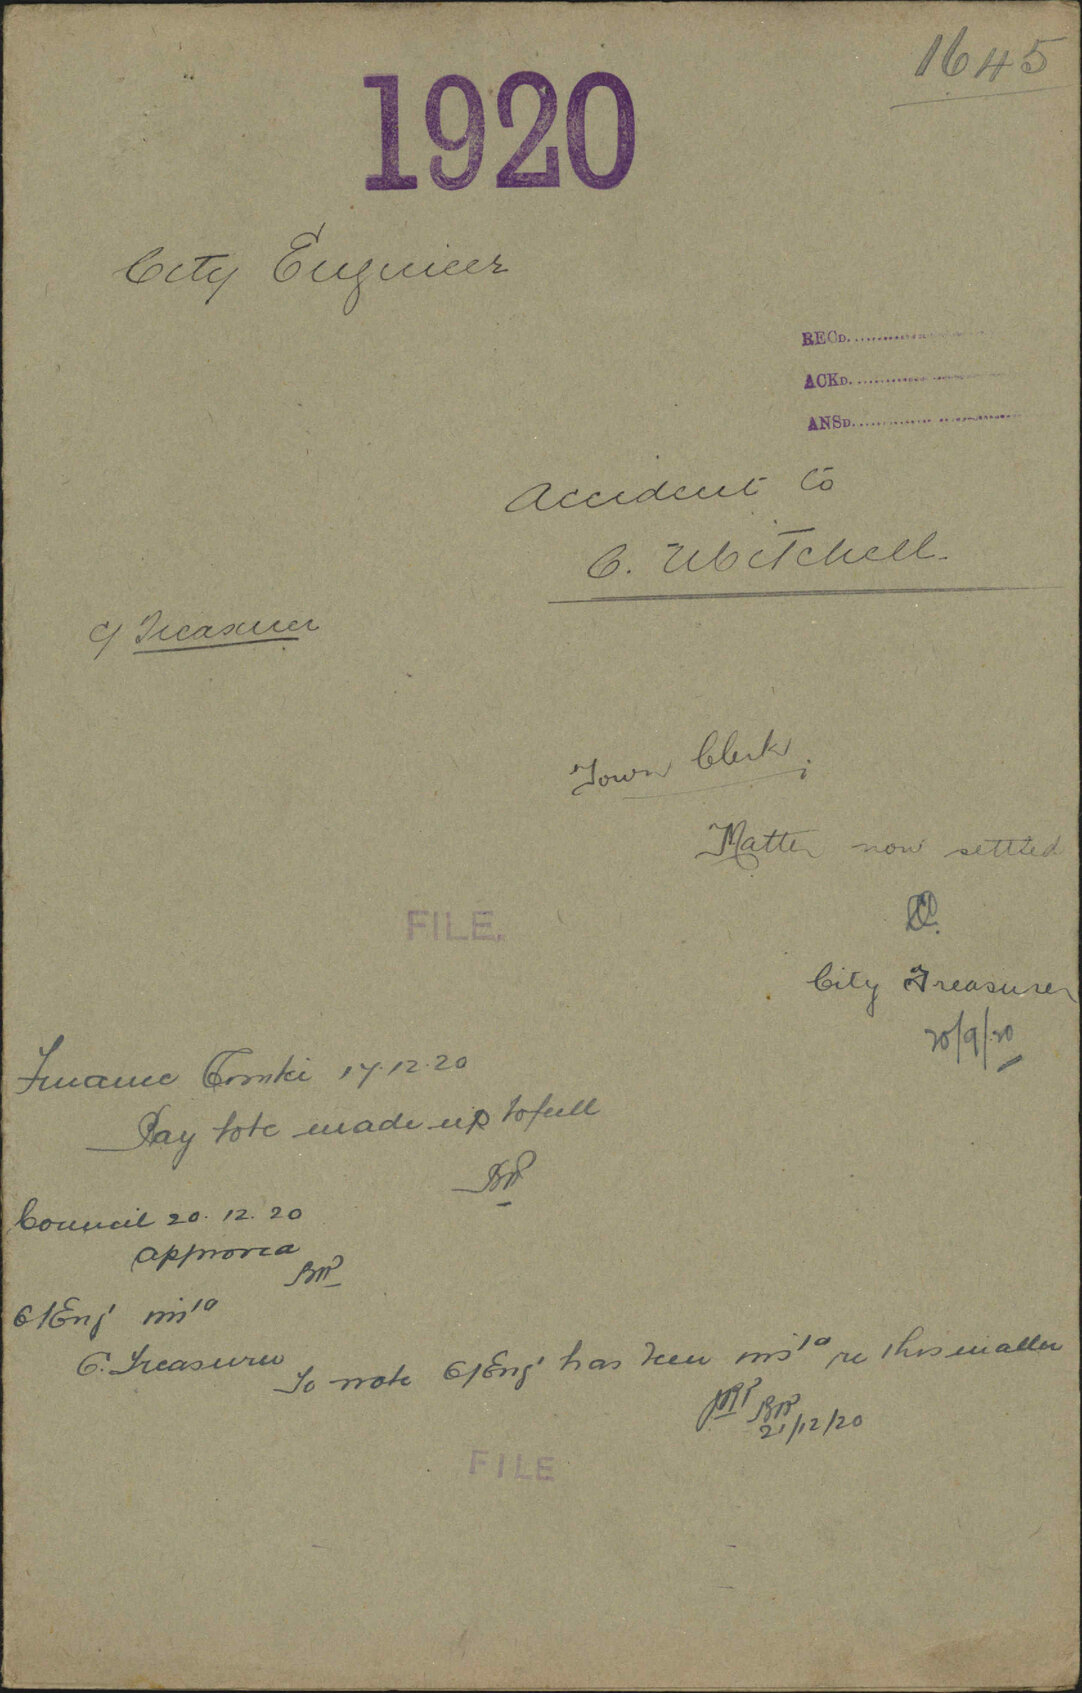 1645
1920
City Engineer
RECD.
ACKD.
ANSD.
Accident to
C. Mitchell
C/ Treasurer
Town Clerk,
Matter now settled
FILE.
City Treasurer
20/9/20
Finance Comtee 17.12.20
Pay to be made up to full
BR
Council 20.12.20
approved
BR
C/Eng'
C. Treasurer
To note C/Eng' has been re this matter
BR
21/12/20
FILE